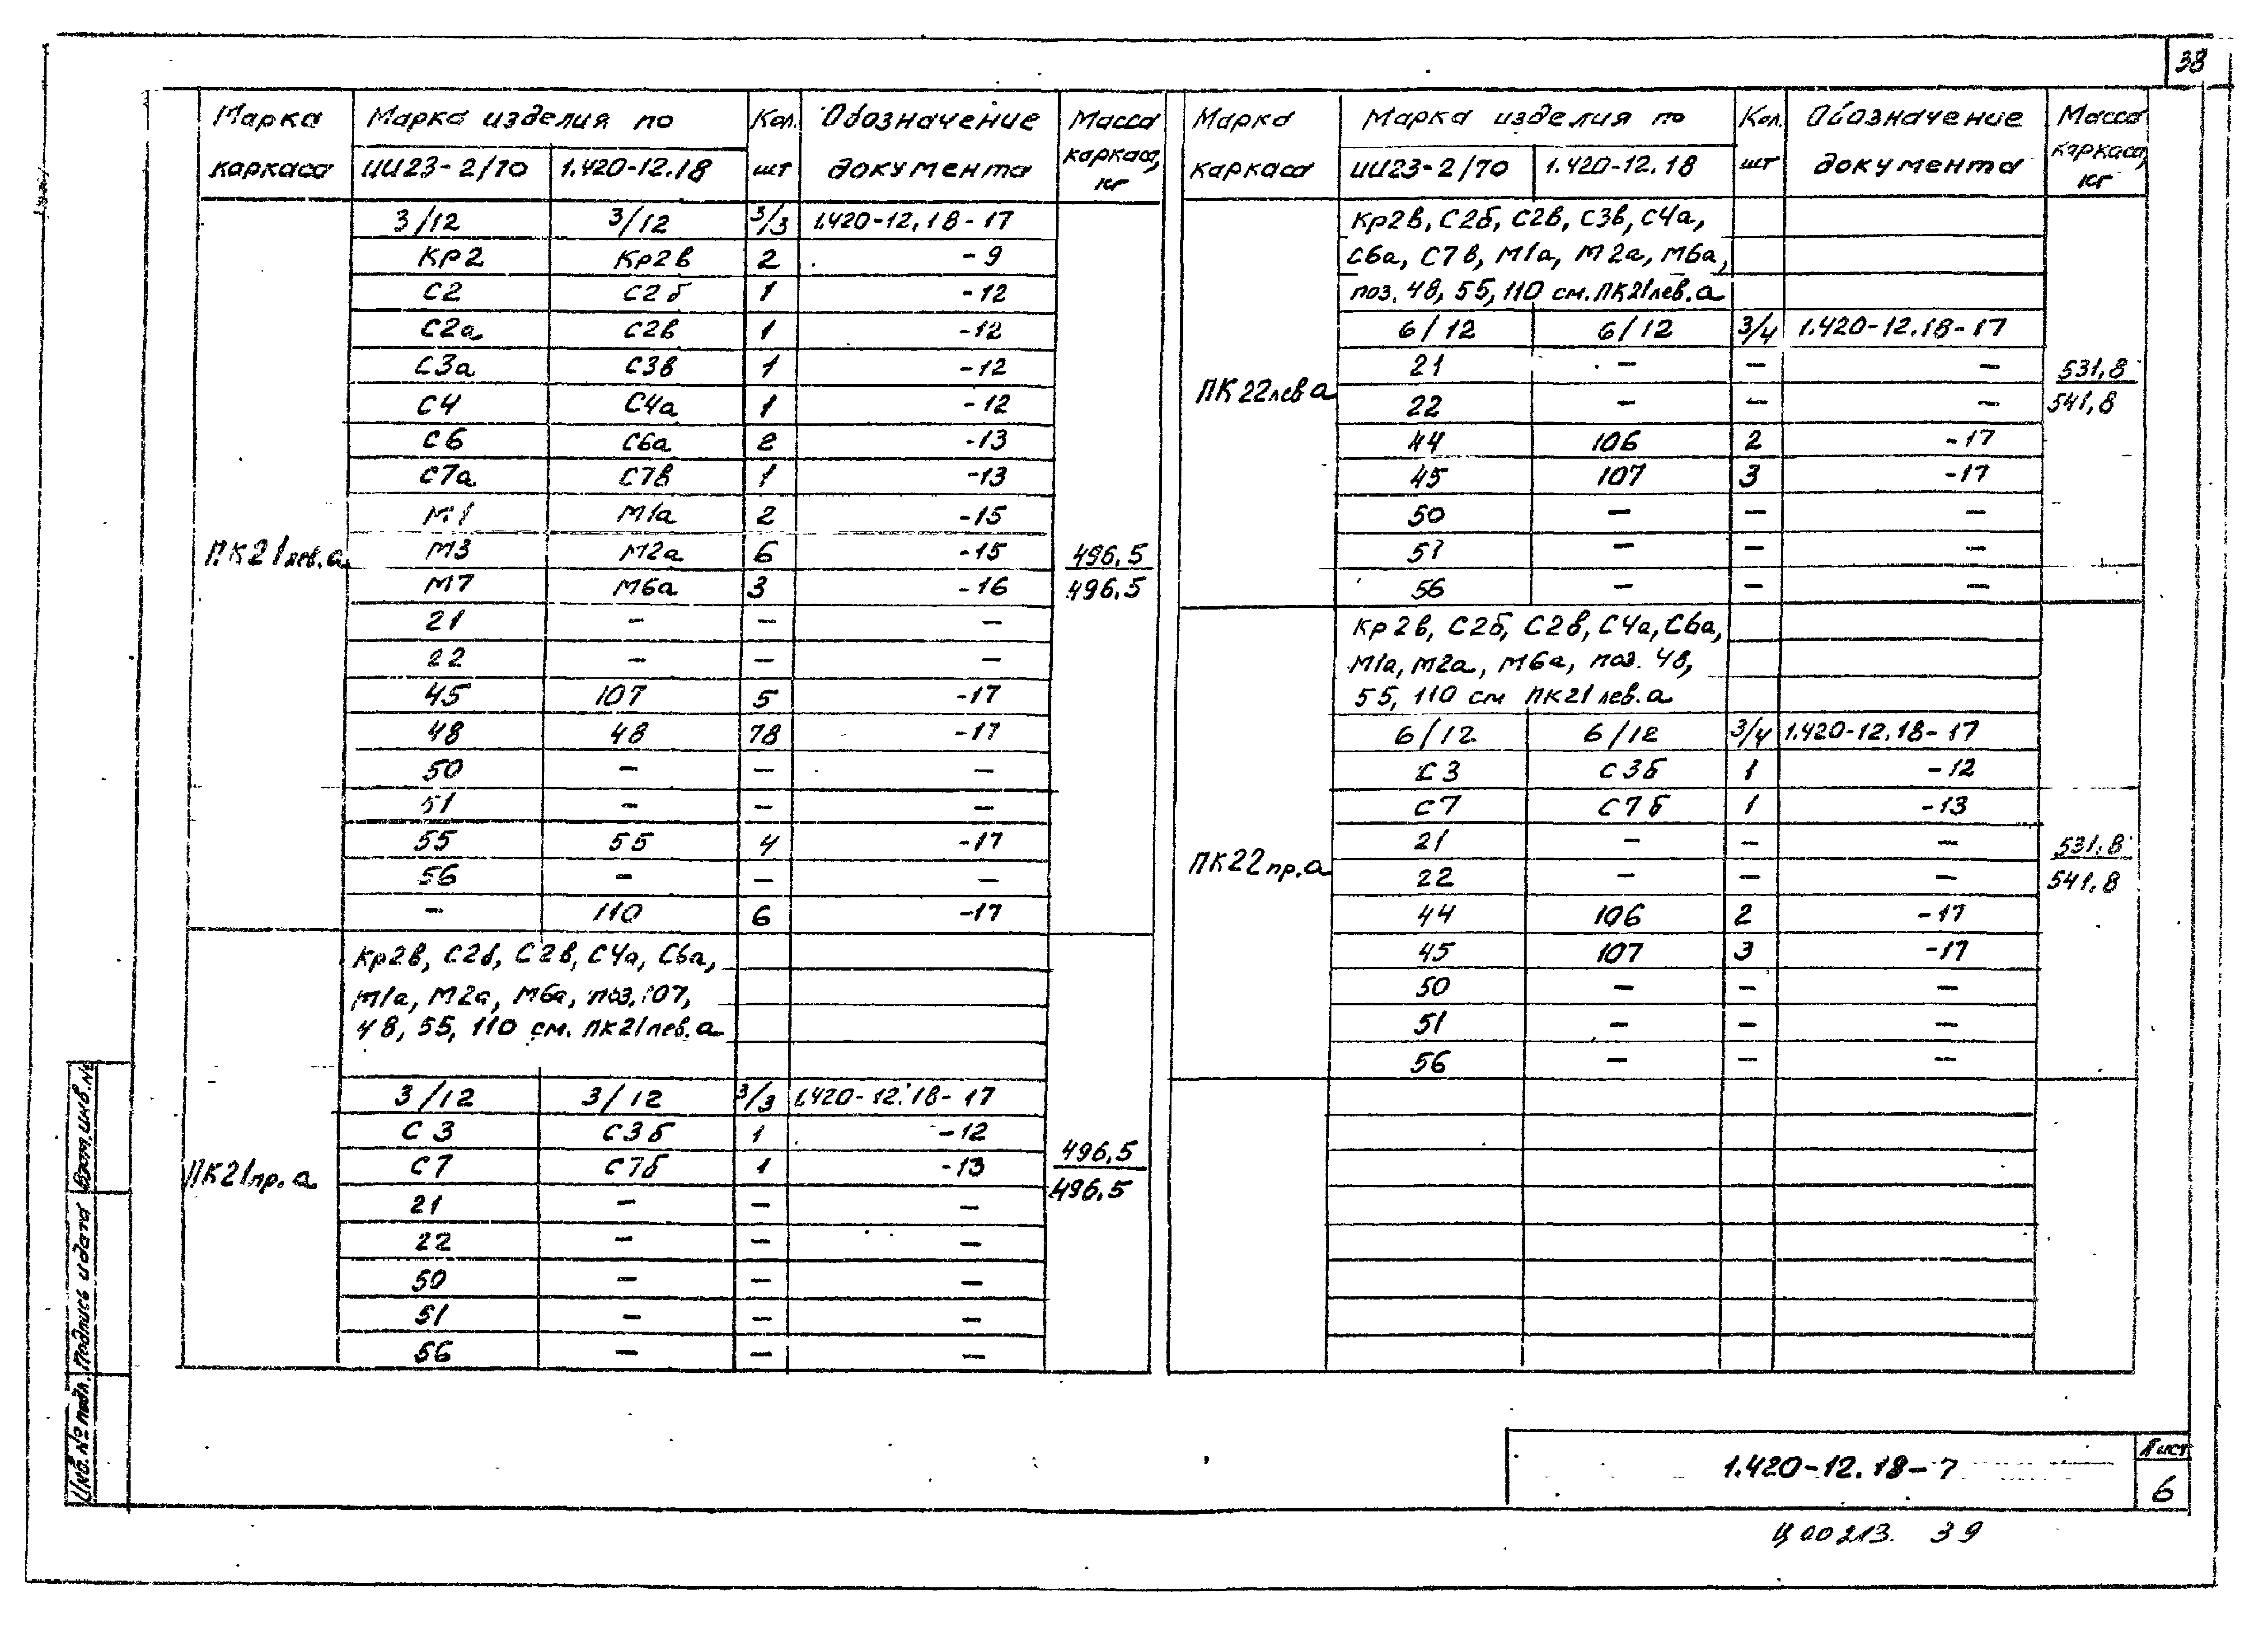 38
Марка каркаса | Марка изделия по | Кол. шт | Обозначение документа | Масса каркаса, кг
ИИ23-2/70 | 1.420-12.18
ПК21лев.а
3/12 | 3/12 | 3/3 | 1.420-12.18-17
Кр2 | Кр2в | 2 | -9
С2 | С2б | 1 | -12
С2а | С2в | 1 | -12
С3а | С3в | 1 | -12
С4 | С4а | 1 | -12
С6 | С6а | 2 | -13
С7а | С7в | 1 | -13
М1 | М1а | 2 | -15
М3 | М2а | 6 | -15 | 496,5
М7 | М6а | 3 | -16 | 496,5
21 | – | – | –
22 | – | – | –
45 | 107 | 5 | -17
48 | 48 | 78 | -17
50 | – | – | –
51 | – | – | –
55 | 55 | 4 | -17
56 | – | – | –
– | 110 | 6 | -17
ПК21пр.а
Кр2в, С2б, С2в, С4а, С6а,
М1а, М2а, М6а, поз.107,
48, 55, 110 см. ПК21лев.а
3/12 | 3/12 | 3/3 | 1.420-12.18-17
С3 | С3б | 1 | -12 | 496,5
С7 | С7б | 1 | -13 | 496,5
21 | – | – | –
22 | – | – | –
50 | – | – | –
51 | – | – | –
56 | – | – | –
Марка каркаса | Марка изделия по | Кол. шт | Обозначение документа | Масса каркаса, кг
ИИ23-2/70 | 1.420-12.18
ПК22лев а
Кр2в, С2б, С2в, С3в, С4а,
С6а, С7в, М1а, М2а, М6а,
поз. 48, 55, 110 см. ПК21лев.а
6/12 | 6/12 | 3/4 | 1.420-12.18-17
21 | – | – | – | 531,8
22 | – | – | – | 541,8
44 | 106 | 2 | -17
45 | 107 | 3 | -17
50 | – | – | –
51 | – | – | –
56 | – | – | –
ПК22пр.а
Кр2в, С2б, С2в, С4а, С6а,
М1а, М2а, М6а, поз. 48,
55, 110 см ПК21лев.а
6/12 | 6/12 | 3/4 | 1.420-12.18-17
С3 | С3б | 1 | -12
С7 | С7б | 1 | -13
21 | – | – | – | 531.8
22 | – | – | – | 541.8
44 | 106 | 2 | -17
45 | 107 | 3 | -17
50 | – | – | –
51 | – | – | –
56 | – | – | –
Инв. № подл. | Подпись и дата | Взам. инв. №
1.420-12.18-7
Лист
6
Ц00213. 39